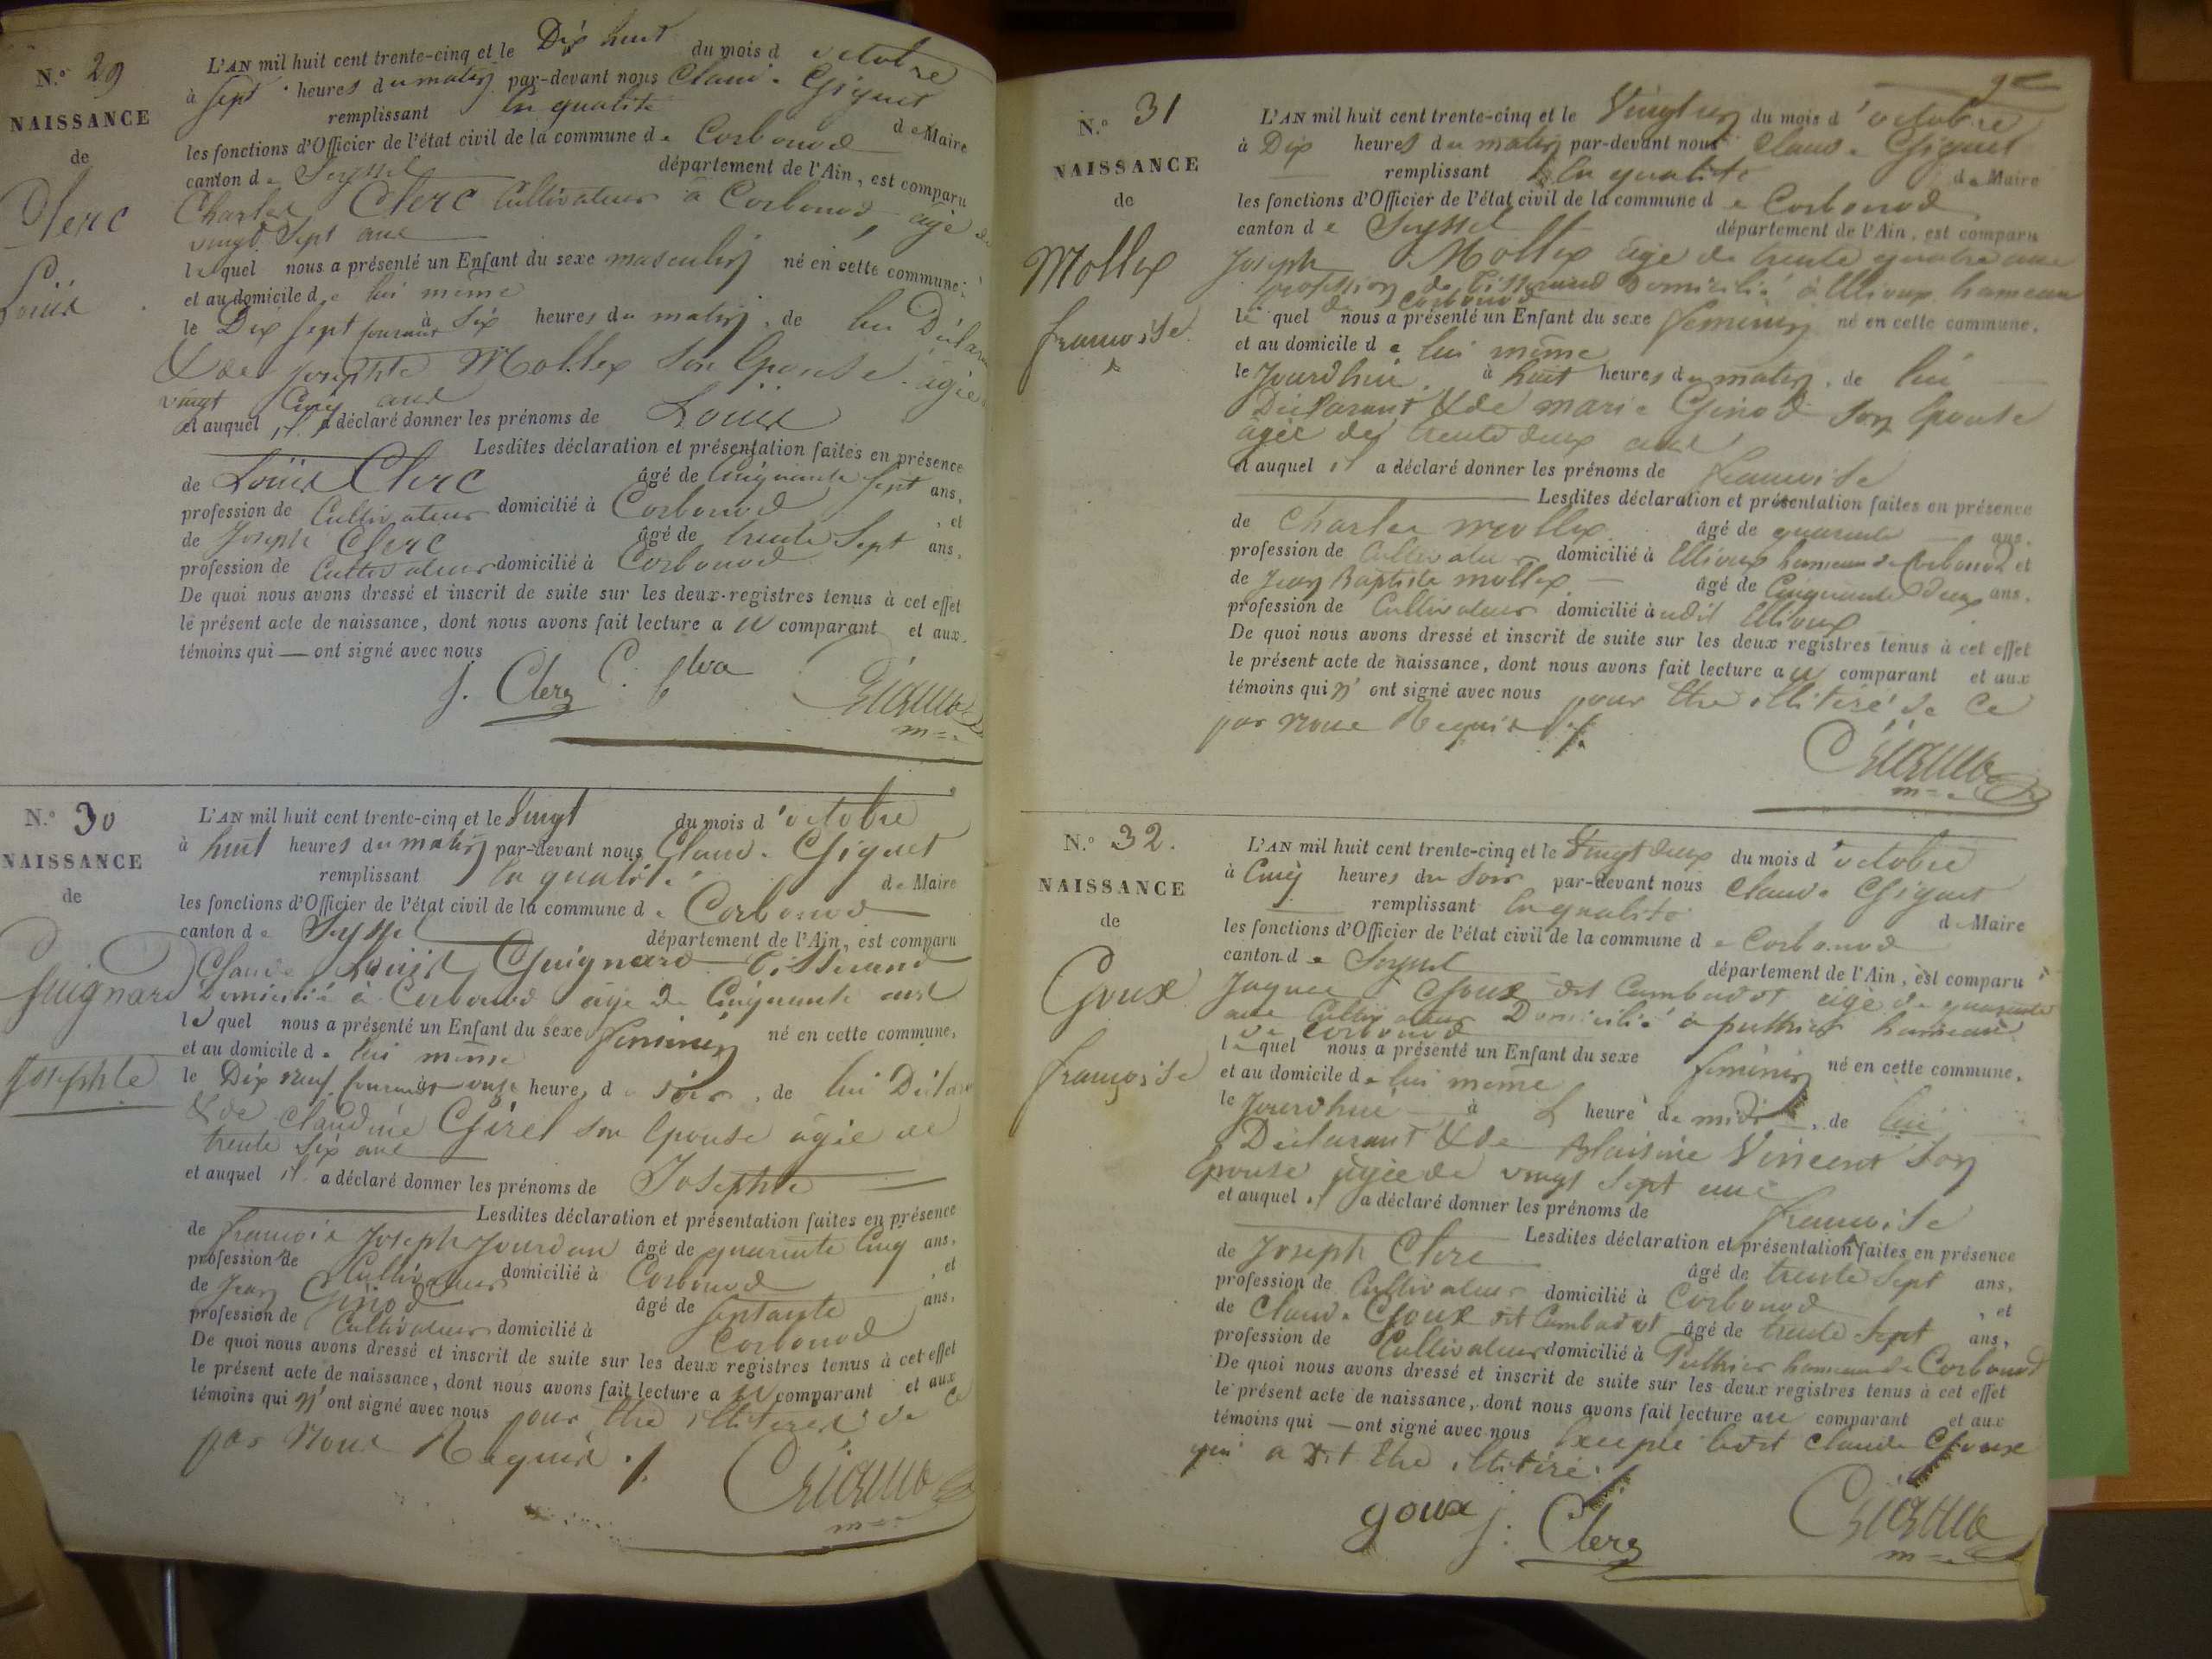 N.° 29
NAISSANCE
de
Clerc
Louis
L'AN mil huit cent trente-cinq et le Dix huit du mois d'octobre
à sept heures du matin par-devant nous Claude Giguet
remplissant en qualité de Maire
les fonctions d'Officier de l'état civil de la commune de Corbonod
canton de Seyssel département de l'Ain, est comparu
Charles Clerc Cultivateur à Corbonod, agé de
vingt Sept ans
lequel nous a présenté un Enfant du sexe masculin né en cette commune,
et au domicile de lui même
le Dix sept courant à Six heures du matin, de lui Déclarant
& de Josephte Mollex Son Epouse agée
vingt Cinq ans
et auquel il a déclaré donner les prénoms de Louis
Lesdites déclaration et présentation faites en présence
de Louis Clerc âgé de Cinquante Sept ans,
profession de Cultivateur domicilié à Corbonod, et
de Joseph Clerc âgé de trente Sept ans,
profession de Cultivateur domicilié à Corbonod
De quoi nous avons dressé et inscrit de suite sur les deux registres tenus à cet effet
le présent acte de naissance, dont nous avons fait lecture au comparant et aux
témoins qui — ont signé avec nous
J. Clerc C.
N.° 30
NAISSANCE
de
Guignard
Josephte
L'AN mil huit cent trente-cinq et le Vingt du mois d'octobre
à huit heures du matin par-devant nous Claude Giguet
remplissant en qualité de Maire
les fonctions d'Officier de l'état civil de la commune de Corbonod
canton de Seyssel département de l'Ain, est comparu
Claude Louis Guignard tisserand
Domicilié à Corbonod âgé de Cinquante ans
lequel nous a présenté un Enfant du sexe féminin né en cette commune,
et au domicile de lui même
le Dix neuf courant à onze heures du soir, de lui Déclarant
& de Claudine Girel son Epouse agée de
trente six ans
et auquel il a déclaré donner les prénoms de Josephte
Lesdites déclaration et présentation faites en présence
de francois Joseph Jourdan âgé de quarante Cinq ans,
profession de Cultivateur domicilié à Corbonod, et
de Jean Ginod âgé de septante ans,
profession de Cultivateur domicilié à Corbonod
De quoi nous avons dressé et inscrit de suite sur les deux registres tenus à cet effet
le présent acte de naissance, dont nous avons fait lecture au comparant et aux
témoins qui n'ont signé avec nous pour être illitérés de ce
par Nous Requis ./.
N.° 31
NAISSANCE
de
Mollex
francoise
L'AN mil huit cent trente-cinq et le Vingt un du mois d'octobre
à Dix heures du matin par-devant nous Claude Giguet
remplissant en qualité de Maire
les fonctions d'Officier de l'état civil de la commune de Corbonod
canton de Seyssel département de l'Ain, est comparu
Joseph Mollex âgé de trente quatre ans
profession de tisserand Domicilié à Ellioux hameau
de Corbonod
lequel nous a présenté un Enfant du sexe féminin né en cette commune,
et au domicile de lui même
le Jourdhui à huit heures du matin, de lui
Déclarant & de marie Ginod son Epouse
agée de trente deux ans
et auquel il a déclaré donner les prénoms de francoise
Lesdites déclaration et présentation faites en présence
de Charles mollex âgé de quarante ans,
profession de Cultivateur domicilié à Ellioux hameau de Corbonod et
de Jean Baptiste mollex âgé de Cinquante Deux ans,
profession de Cultivateur domicilié à udit Ellioux
De quoi nous avons dressé et inscrit de suite sur les deux registres tenus à cet effet
le présent acte de naissance, dont nous avons fait lecture au comparant et aux
témoins qui n'ont signé avec nous pour être illitéré de ce
par nous Requis ./.
N.° 32.
NAISSANCE
de
Goux
françoise
L'AN mil huit cent trente-cinq et le Vingt deux du mois d'octobre
à Cinq heures du Soir par-devant nous Claude Giguet
remplissant en qualité de Maire
les fonctions d'Officier de l'état civil de la commune de Corbonod
canton de Seyssel département de l'Ain, est comparu
Jaques Goux dit Cambadot âgé de quarante
ans Cultivateur Domicilié à puthier hameau
de Corbonod
lequel nous a présenté un Enfant du sexe féminin né en cette commune,
et au domicile de lui même
le Jourdhui à heure de midi, de lui
Déclarant & de Blaisine Vincent Son
Epouse agée de vingt Sept ans
et auquel il a déclaré donner les prénoms de francoise
Lesdites déclaration et présentation faites en présence
de Joseph Clerc âgé de trente Sept ans,
profession de Cultivateur domicilié à Corbonod, et
de Claude Goux dit Cambadot âgé de trente Sept ans,
profession de Cultivateur domicilié à Puthier hameau de Corbonod
De quoi nous avons dressé et inscrit de suite sur les deux registres tenus à cet effet
le présent acte de naissance, dont nous avons fait lecture au comparant et aux
témoins qui — ont signé avec nous Excepté ledit Claude Goux
qui a Dit Etre illitéré.
goux J. Clerc